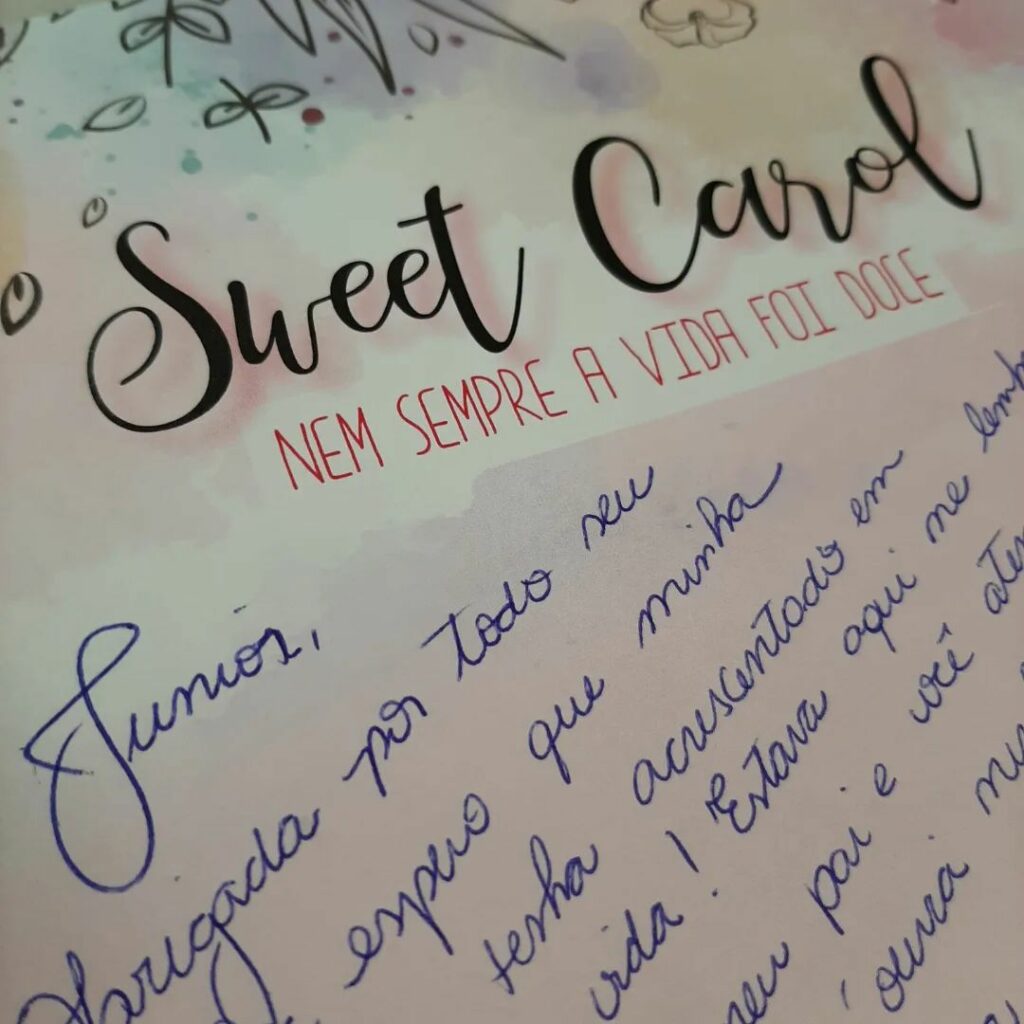 Sweet Carol
NEM SEMPRE A VIDA FOI DOCE
Junior,
Obrigada por todo seu
espero que minha
tenha acrescentado em
vida! Estava aqui me
seu pai e você